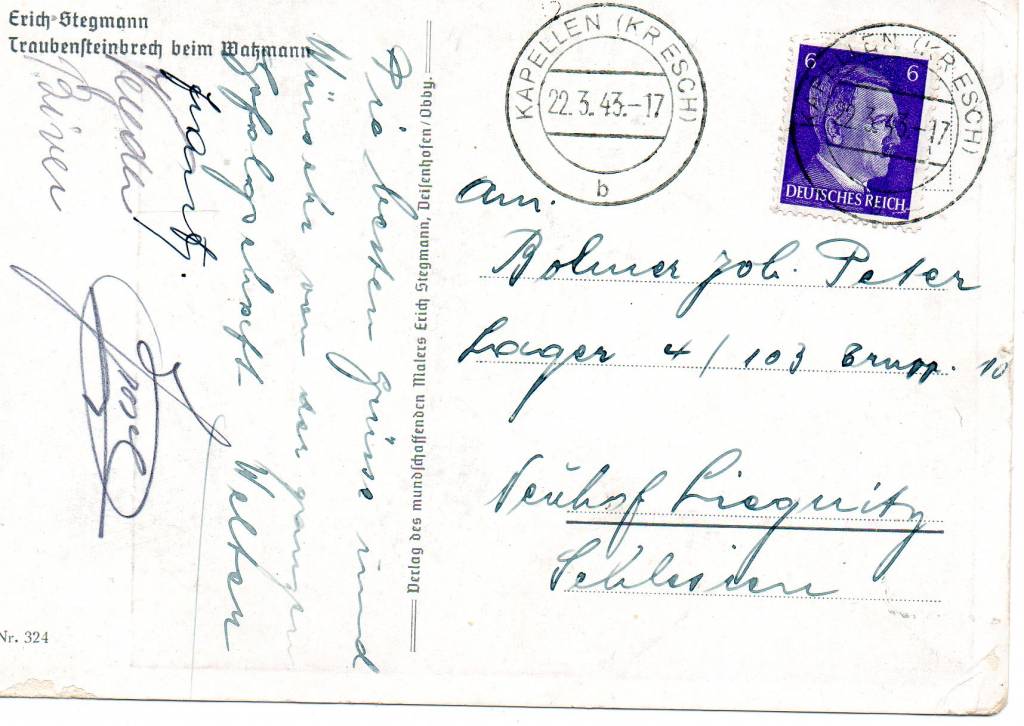 Erich Stegmann
Traubensteinbrech beim Watzmann
Die besten Grüsse und
Wünsche von der ganzen
Gefolgschaft Welten
Verlag des mundschaffenden Malers Erich Stegmann, Deisenhofen/Obby.
KAPELLEN (KR ESCH)
22.3.43.-17
b
KAPELLEN (KR ESCH)
22.3.43-17
6 6
DEUTSCHES REICH
An.
Bolmer Joh. Peter
Lager 4/103 Grupp. 10
Neuhof Liegnitz
Schlesien
Nr. 324